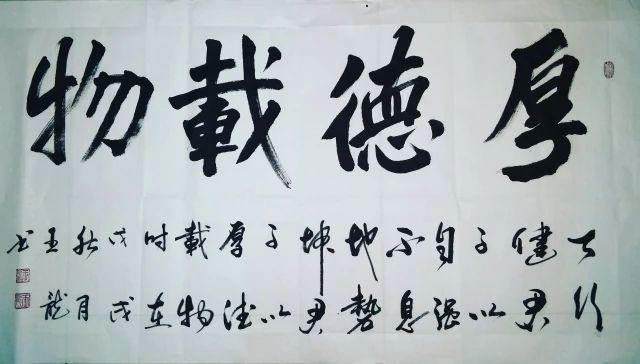 厚德載物
天行
健君
子以
自强
不息
地勢
坤君
子以
厚德
載物
时在
戊戌
秋月
王龍
书